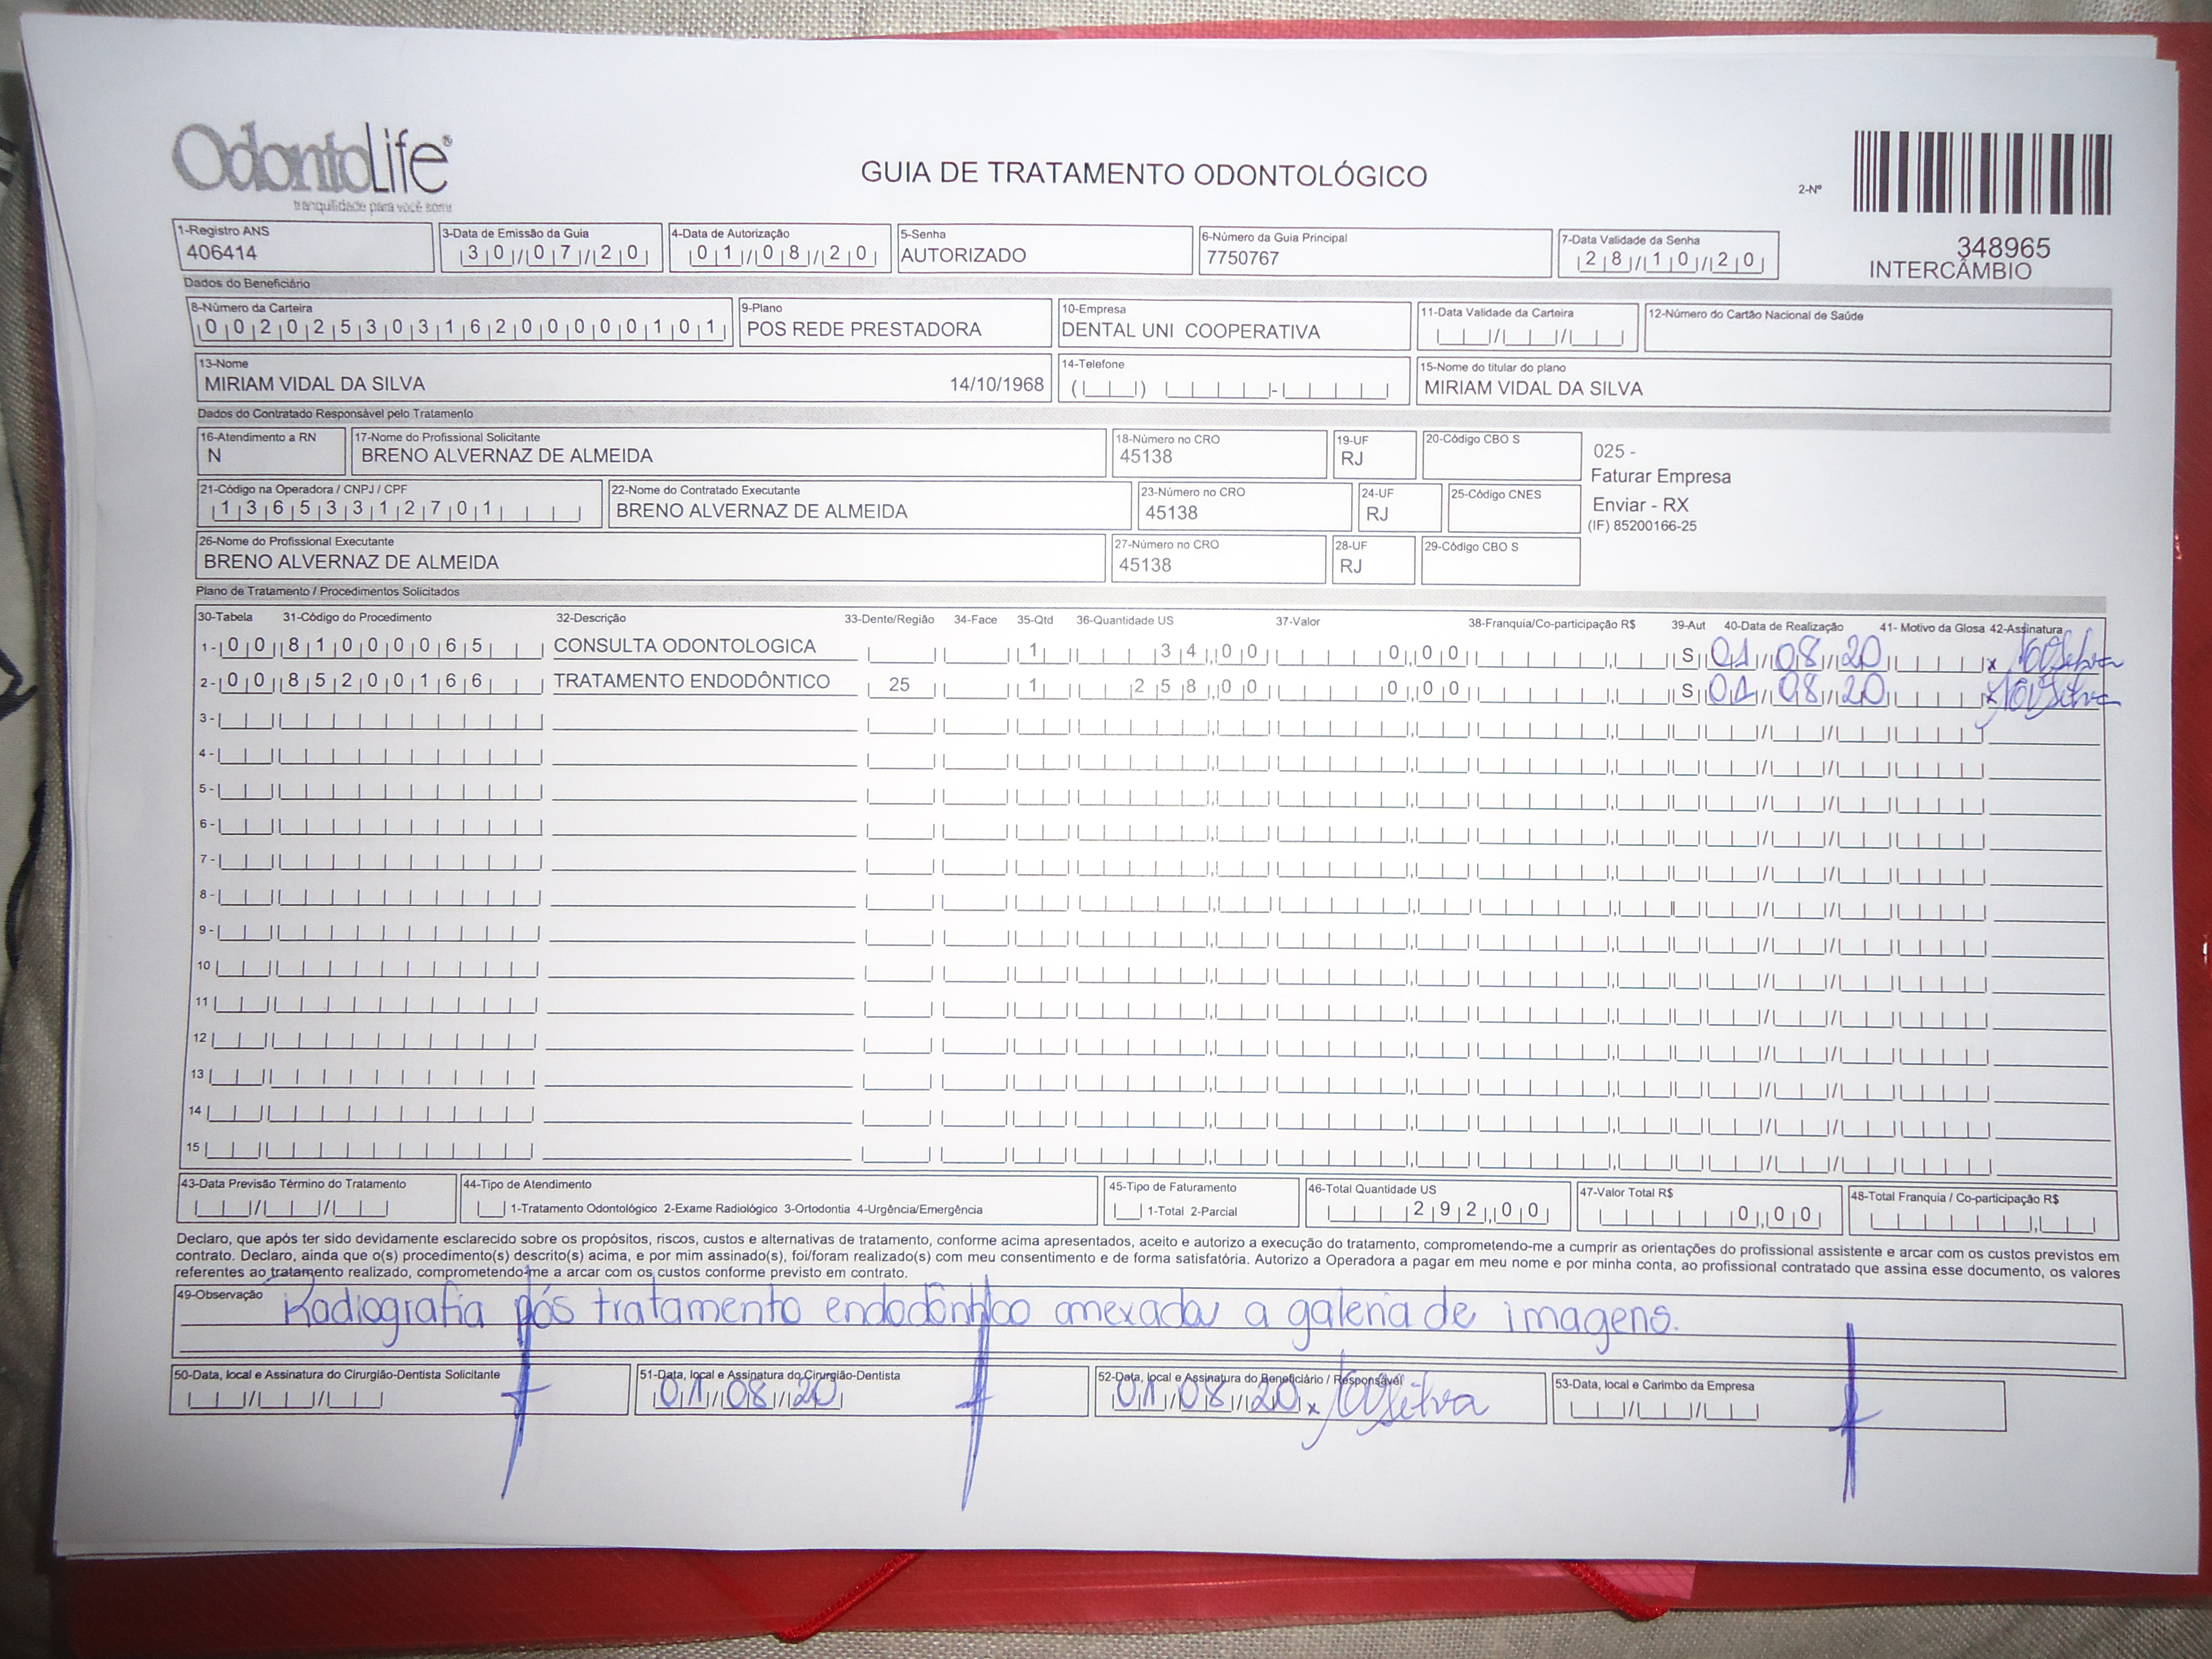 OdontoLife®
tranquilidade para você sorrir
GUIA DE TRATAMENTO ODONTOLÓGICO
2-Nº
348965
INTERCÂMBIO
1-Registro ANS
406414
3-Data de Emissão da Guia
30/07/20
4-Data de Autorização
01/08/20
5-Senha
AUTORIZADO
6-Número da Guia Principal
7750767
7-Data Validade da Senha
28/10/20
Dados do Beneficiário
8-Número da Carteira
00202530316200000101
9-Plano
POS REDE PRESTADORA
10-Empresa
DENTAL UNI COOPERATIVA
11-Data Validade da Carteira
12-Número do Cartão Nacional de Saúde
13-Nome
MIRIAM VIDAL DA SILVA 14/10/1968
14-Telefone
15-Nome do titular do plano
MIRIAM VIDAL DA SILVA
Dados do Contratado Responsável pelo Tratamento
16-Atendimento a RN
N
17-Nome do Profissional Solicitante
BRENO ALVERNAZ DE ALMEIDA
18-Número no CRO
45138
19-UF
RJ
20-Código CBO S
025 -
Faturar Empresa
Enviar - RX
(IF) 85200166-25
21-Código na Operadora / CNPJ / CPF
13653312701
22-Nome do Contratado Executante
BRENO ALVERNAZ DE ALMEIDA
23-Número no CRO
45138
24-UF
RJ
25-Código CNES
26-Nome do Profissional Executante
BRENO ALVERNAZ DE ALMEIDA
27-Número no CRO
45138
28-UF
RJ
29-Código CBO S
Plano de Tratamento / Procedimentos Solicitados
30-Tabela 31-Código do Procedimento 32-Descrição 33-Dente/Região 34-Face 35-Qtd 36-Quantidade US 37-Valor 38-Franquia/Co-participação R$ 39-Aut 40-Data de Realização 41- Motivo da Glosa 42-Assinatura
1- 00 81000065 CONSULTA ODONTOLOGICA 1 34,00 0,00 S 01/08/20 x
2- 00 85200166 TRATAMENTO ENDODÔNTICO 25 1 258,00 0,00 S 01/08/20 x
3-
4-
5-
6-
7-
8-
9-
10
11
12
13
14
15
43-Data Previsão Término do Tratamento
44-Tipo de Atendimento
1-Tratamento Odontológico 2-Exame Radiológico 3-Ortodontia 4-Urgência/Emergência
45-Tipo de Faturamento
1-Total 2-Parcial
46-Total Quantidade US
292,00
47-Valor Total R$
0,00
48-Total Franquia / Co-participação R$
Declaro, que após ter sido devidamente esclarecido sobre os propósitos, riscos, custos e alternativas de tratamento, conforme acima apresentados, aceito e autorizo a execução do tratamento, comprometendo-me a cumprir as orientações do profissional assistente e arcar com os custos previstos em
contrato. Declaro, ainda que o(s) procedimento(s) descrito(s) acima, e por mim assinado(s), foi/foram realizado(s) com meu consentimento e de forma satisfatória. Autorizo a Operadora a pagar em meu nome e por minha conta, ao profissional contratado que assina esse documento, os valores
referentes ao tratamento realizado, comprometendo-me a arcar com os custos conforme previsto em contrato.
49-Observação
Radiografia pós tratamento endodôntico anexada a galeria de imagens.
50-Data, local e Assinatura do Cirurgião-Dentista Solicitante
51-Data, local e Assinatura do Cirurgião-Dentista
01/08/20
52-Data, local e Assinatura do Beneficiário / Responsável
01/08/20 x
53-Data, local e Carimbo da Empresa